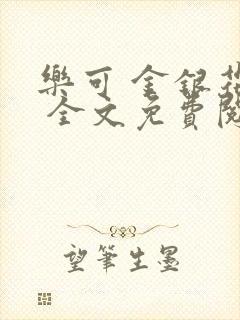 樂可 金銀花
全文免費閱
望筆生墨